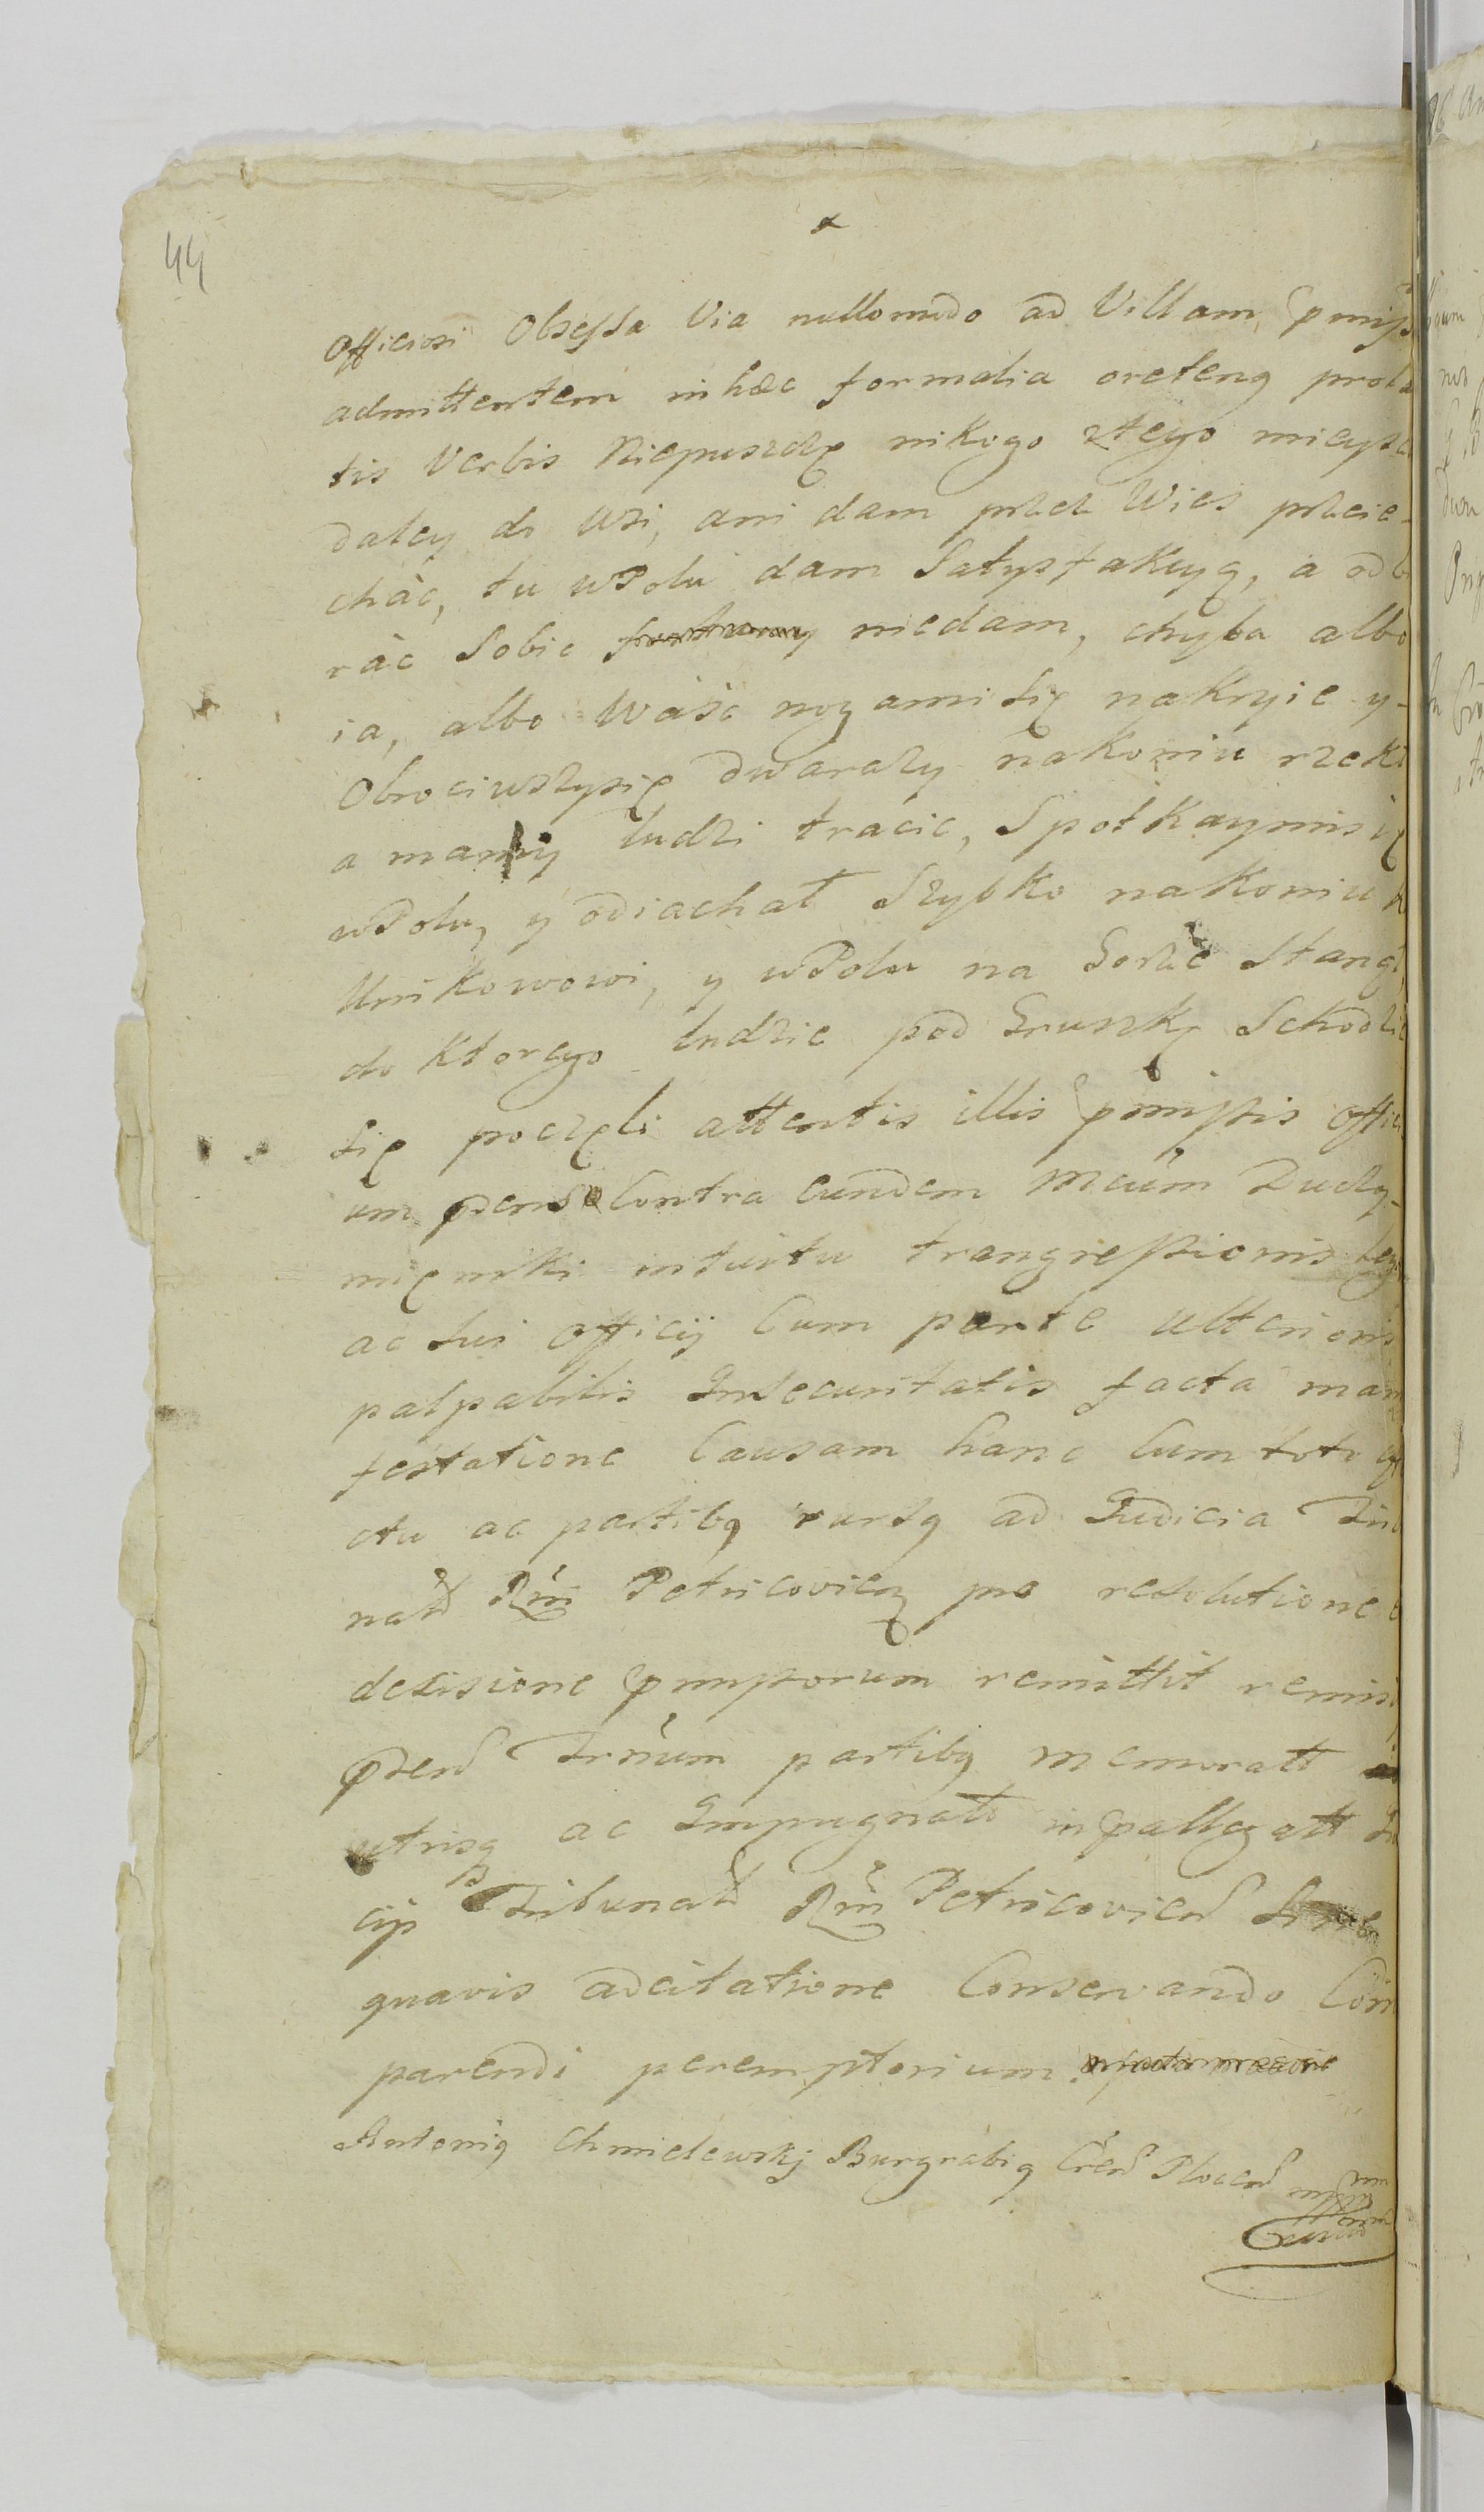 44
Officiosi Obsessa Via nullomodo ad Villam pmiss
admittentem in hæc formalia oreteng prola
tis Verbis Niepuszczę nikogo ztego mieysca
daley do Wsi, ani dam przez Wies przeie-
chác, tu wPolu dam Satysfakcyą, a odbi
rác Sobie niedam, chyba albo
ia, albo Wásc nogami się nakryie y
Obrociwszysię dwarazy nakoniu rzekł
a mamy ludzi trácic, Spotkaymisię
wPolu, y odiachał Szybko nakoniu k
Unikowowi, y wPolu na Gorze Stanął,
do Ktorego ludzie pod Gruszkę Schodzić
się poczęli attentis illis pmissis Offici
um pens Contra eundem Mcum Duczy-
mięnski intuitu transgressionis legis
ac Sui Officij Cum parte ulterioris
palpabilis Insecuritatis facta mani
festatione Causam hanc Cum toto effe
ctu ac partibq rursq ad Iudicia Trib
nalŧ Rni Petricoviens pro resolutione e
decisione pmissorum remittit remis
psens Trnum partibq memoratt
utrisq ac Impugnatt in pallegatt Iu
cijs Tribunalŧ Rni Petricoviens
quavis adcitatione Conservando Com
parendi peremptorium.
Antoniq Chmielewskj Burgrabiq Crens Plocens mpp